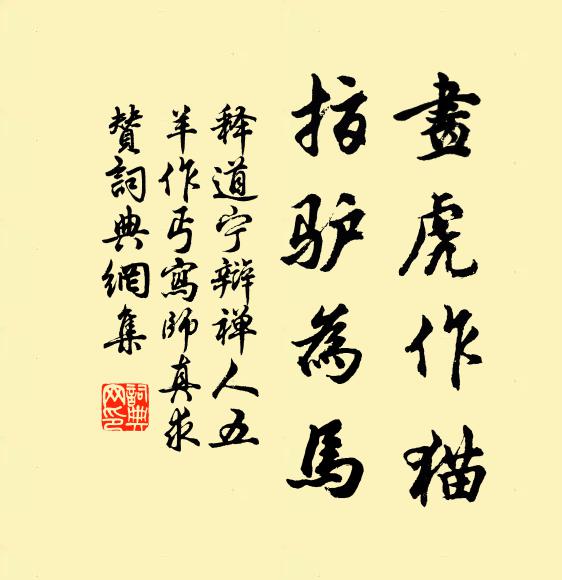 畫虎作猫
指驴為馬
释道宁辯禅人五
羊作丐寫師真求
贊詞典網集
詞典
网印